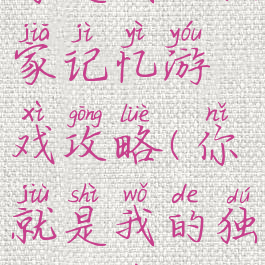 jiā jì yì yóu
家记忆游
xì gōng lüè nǐ
戏攻略(你
jiù shì wǒ de dú
就是我的独